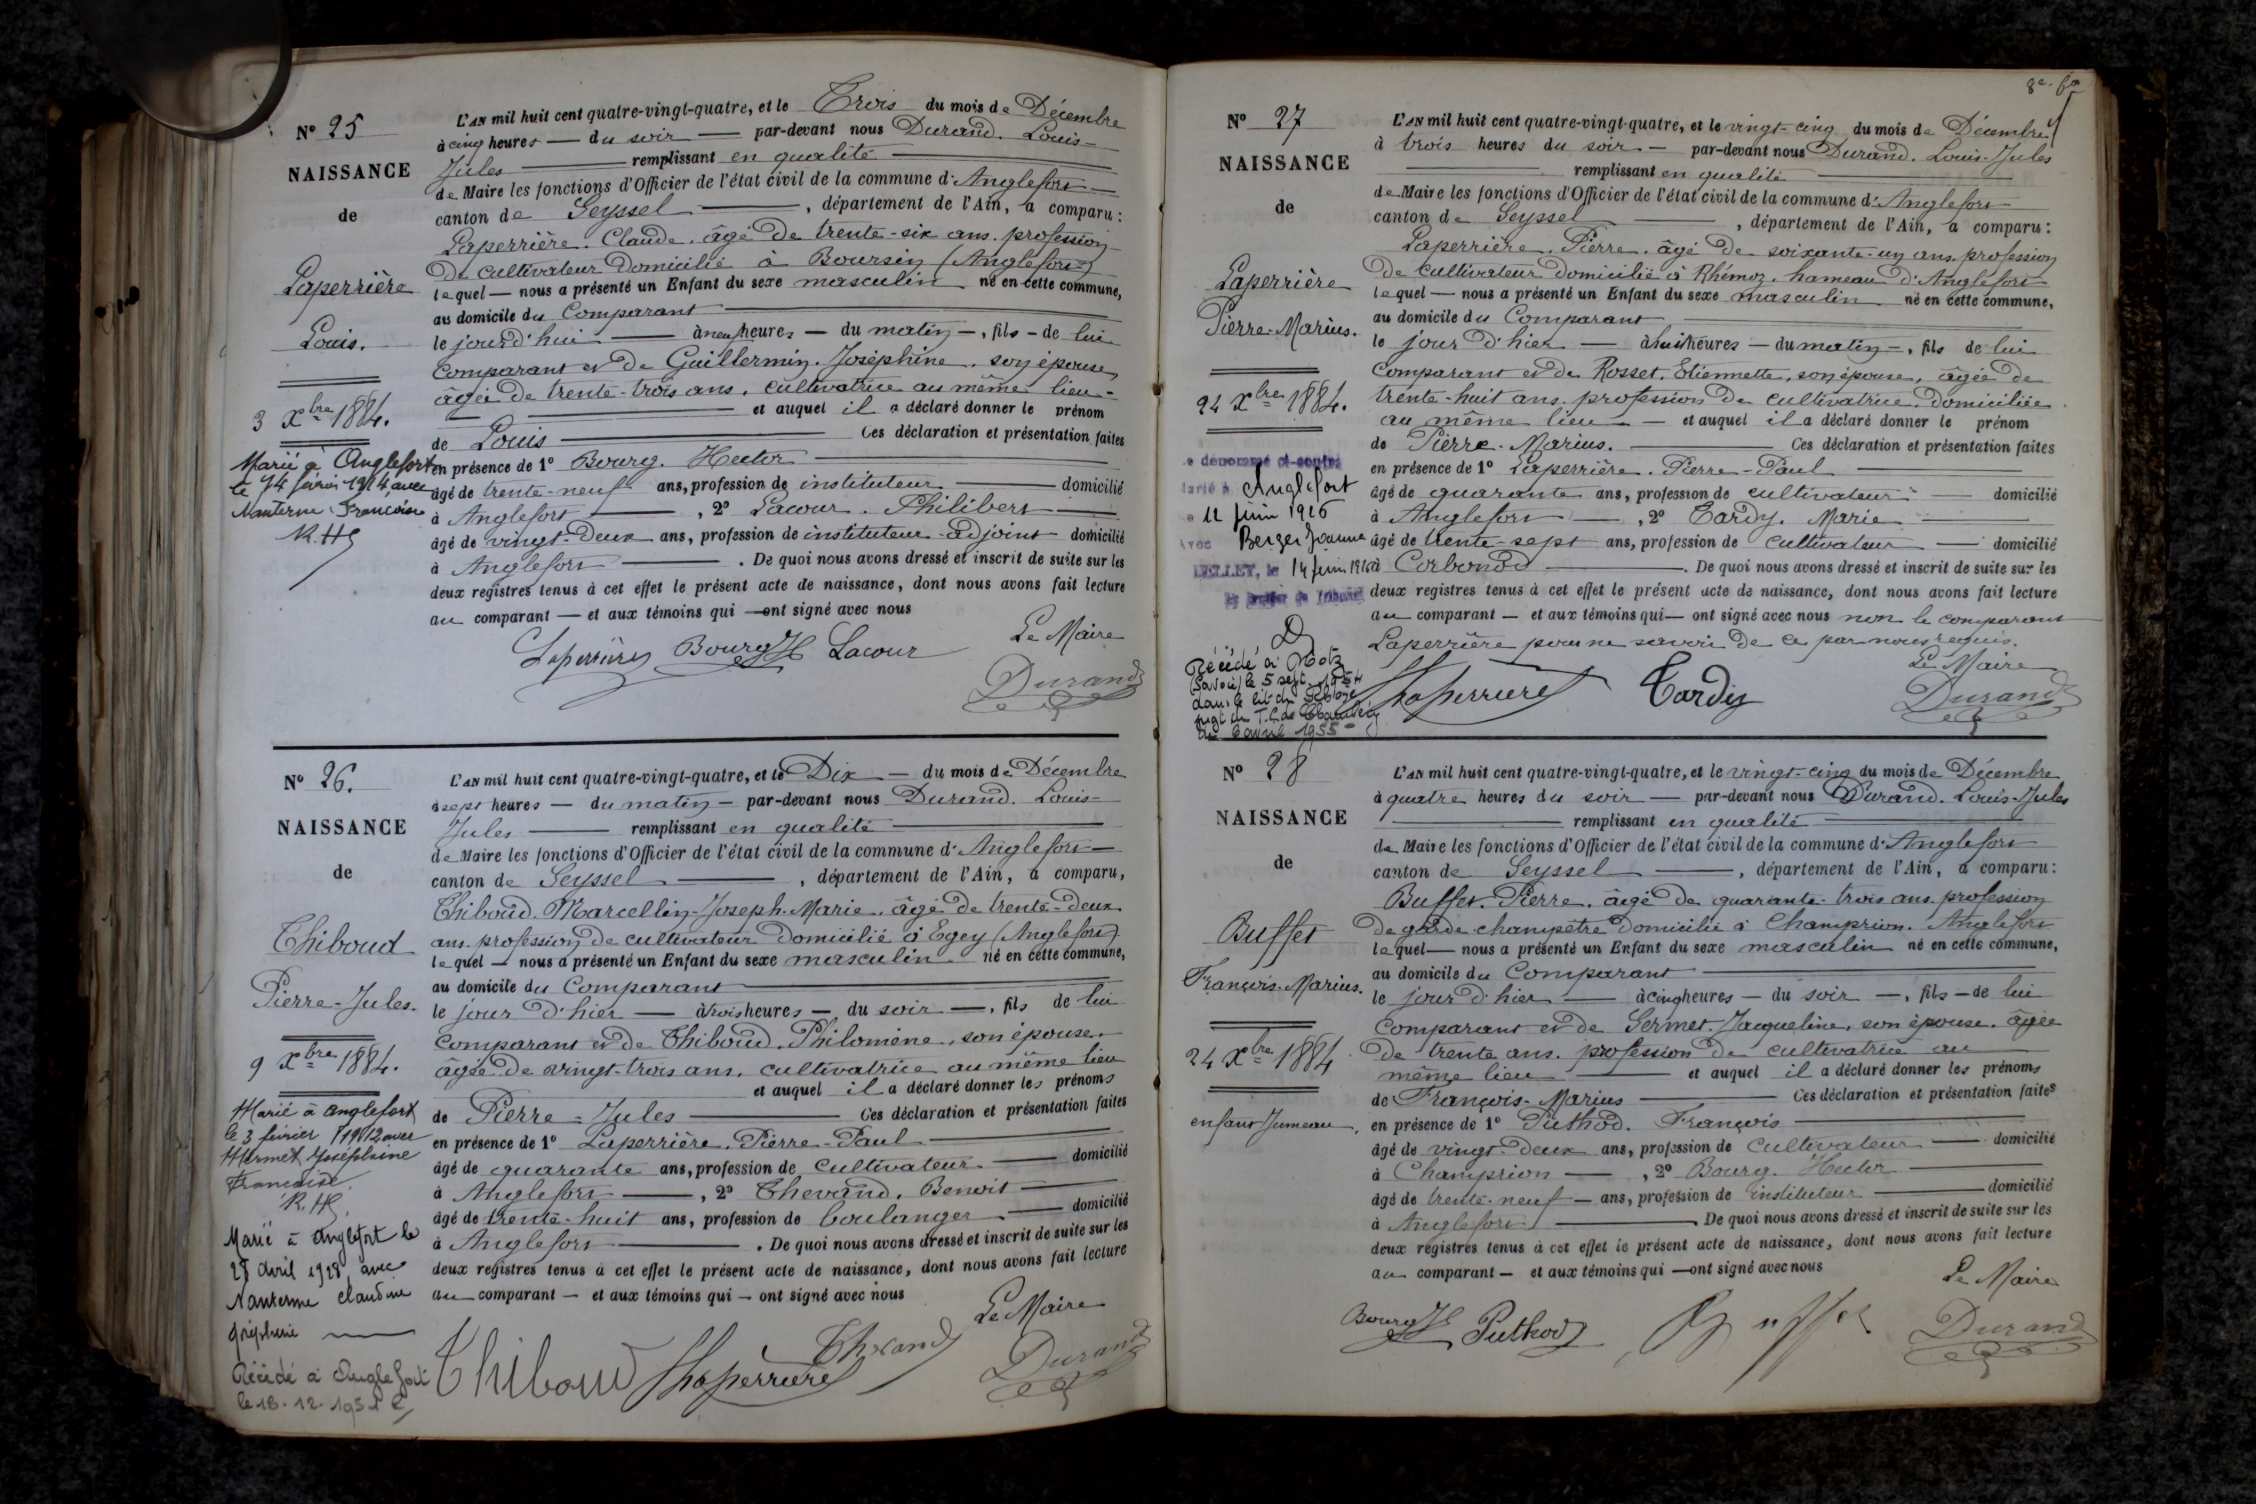 N° 25
NAISSANCE
de
Laperrière
Louis.
3 Xbre 1884.
Marié à Anglefort
le 14 février 1914 avec
Nanterme Françoise
R. HG
L'AN mil huit cent quatre-vingt-quatre, et le Trois du mois de Décembre
à cinq heures — du soir — par-devant nous Durand. Louis-
Jules — remplissant en qualité —
de Maire les fonctions d'Officier de l'état civil de la commune d'Anglefort —
canton de Seyssel —, département de l'Ain, a comparu :
Laperrière. Claude. âgé de trente-six ans. profession
de cultivateur domicilié à Boursin (Anglefort)
lequel — nous a présenté un Enfant du sexe masculin né en cette commune,
au domicile du Comparant —
le jour d'hui — à neuf heures — du matin —, fils — de lui
Comparant et de Guillermin. Joséphine. son épouse,
âgée de trente-trois ans. cultivatrice au même lieu -
— et auquel il a déclaré donner le prénom
de Louis — Ces déclaration et présentation faites
en présence de 1° Bourg. Hector —
âgé de trente-neuf ans, profession de instituteur — domicilié
à Anglefort —, 2° Lacour. Philibert —
âgé de vingt-deux ans, profession de instituteur-adjoint domicilié
à Anglefort —. De quoi nous avons dressé et inscrit de suite sur les
deux registres tenus à cet effet le présent acte de naissance, dont nous avons fait lecture
au comparant — et aux témoins qui — ont signé avec nous
Le Maire
Laperrière Bourg H Lacour
Durand
N° 26.
NAISSANCE
de
Thiboud
Pierre-Jules.
9 Xbre 1884.
Marié à Anglefort
le 3 février 1912 avec
Mermet Joséphine
Françoise.
R. HG.
Marié à Anglefort le
28 avril 1928 avec
Nanterme Claudine
Joséphine —
Décédé à Anglefort
le 18.12.195
L'AN mil huit cent quatre-vingt-quatre, et le Dix — du mois de Décembre
à sept heures — du matin — par-devant nous Durand. Louis-
Jules — remplissant en qualité —
de Maire les fonctions d'Officier de l'état civil de la commune d'Anglefort —
canton de Seyssel —, département de l'Ain, a comparu,
Thiboud. Marcellin-Joseph-Marie. âgé de trente-deux
ans. profession de cultivateur domicilié à Egey (Anglefort)
lequel — nous a présenté un Enfant du sexe masculin né en cette commune,
au domicile du Comparant —
le jour d'hier — à trois heures — du soir —, fils de lui
Comparant et de Thiboud. Philomène, son épouse.
âgée de vingt-trois ans. cultivatrice au même lieu
et auquel il a déclaré donner les prénoms
de Pierre-Jules — Ces déclaration et présentation faites
en présence de 1° Laperrière. Pierre-Paul —
âgé de quarante ans, profession de cultivateur — domicilié
à Anglefort —, 2° Thevand. Benoit —
âgé de trente-huit ans, profession de boulanger — domicilié
à Anglefort —. De quoi nous avons dressé et inscrit de suite sur les
deux registres tenus à cet effet le présent acte de naissance, dont nous avons fait lecture
au comparant — et aux témoins qui — ont signé avec nous
Le Maire
Thiboud Laperrière Thevand
Durand
N° 27
NAISSANCE
de
Laperrière
Pierre-Marius.
24 Xbre 1884.
le dénommé ci-contre
Marié à Anglefort
le 11 juin 1916
avec Berger Jeanne
BELLEY, le 14 juin 1916
Le greffier du Tribunal
Décédé à Motz
(Savoie) le 5 sept. 1954
dans le lit du Rhône
jugt du T.C. de Chambéry
du 6 avril 1955
L'AN mil huit cent quatre-vingt-quatre, et le vingt-cinq du mois de Décembre
à trois heures du soir — par-devant nous Durand. Louis-Jules
— remplissant en qualité —
de Maire les fonctions d'Officier de l'état civil de la commune d'Anglefort
canton de Seyssel —, département de l'Ain, a comparu :
Laperrière. Pierre. âgé de soixante-un ans. profession
de cultivateur domicilié à Rhémoz. hameau d'Anglefort
lequel — nous a présenté un Enfant du sexe masculin né en cette commune,
au domicile du Comparant —
le jour d'hier — à huit heures — du matin —, fils de lui
Comparant et de Rosset. Etiennette, son épouse, âgée de
trente-huit ans. profession de cultivatrice. domiciliée
au même lieu — et auquel il a déclaré donner le prénom
de Pierre-Marius. — Ces déclaration et présentation faites
en présence de 1° Laperrière. Pierre-Paul —
âgé de quarante ans, profession de cultivateur — domicilié
à Anglefort —, 2° Tardy. Marie —
âgé de trente-sept ans, profession de cultivateur — domicilié
à Corbonod —. De quoi nous avons dressé et inscrit de suite sur les
deux registres tenus à cet effet le présent acte de naissance, dont nous avons fait lecture
au comparant — et aux témoins qui — ont signé avec nous non le comparant
Laperrière pour ne savoir de ce par nous requis.
Le Maire
Laperrière Tardy
Durand
N° 28
NAISSANCE
de
Buffet
François-Marius.
24 Xbre 1884
enfant Jumeau.
L'AN mil huit cent quatre-vingt-quatre, et le vingt-cinq du mois de Décembre
à quatre heures du soir — par-devant nous Durand. Louis-Jules
— remplissant en qualité —
de Maire les fonctions d'Officier de l'état civil de la commune d'Anglefort
canton de Seyssel —, département de l'Ain, a comparu :
Buffet. Pierre. âgé de quarante-trois ans. profession
de garde champêtre domicilié à Champrion. Anglefort
lequel — nous a présenté un Enfant du sexe masculin né en cette commune,
au domicile du Comparant —
le jour d'hier — à cinq heures — du soir —, fils — de lui
Comparant et de Sermet. Jacqueline, son épouse. âgée
de trente ans. profession de cultivatrice au
même lieu — et auquel il a déclaré donner les prénoms
de François-Marius — Ces déclaration et présentation faites
en présence de 1° Puthod. François —
âgé de vingt-deux ans, profession de cultivateur — domicilié
à Champrion —, 2° Bourg. Hector —
âgé de trente-neuf — ans, profession de instituteur — domicilié
à Anglefort —. De quoi nous avons dressé et inscrit de suite sur les
deux registres tenus à cet effet le présent acte de naissance, dont nous avons fait lecture
au comparant — et aux témoins qui — ont signé avec nous
Le Maire
Bourg H Puthod Buffet
Durand